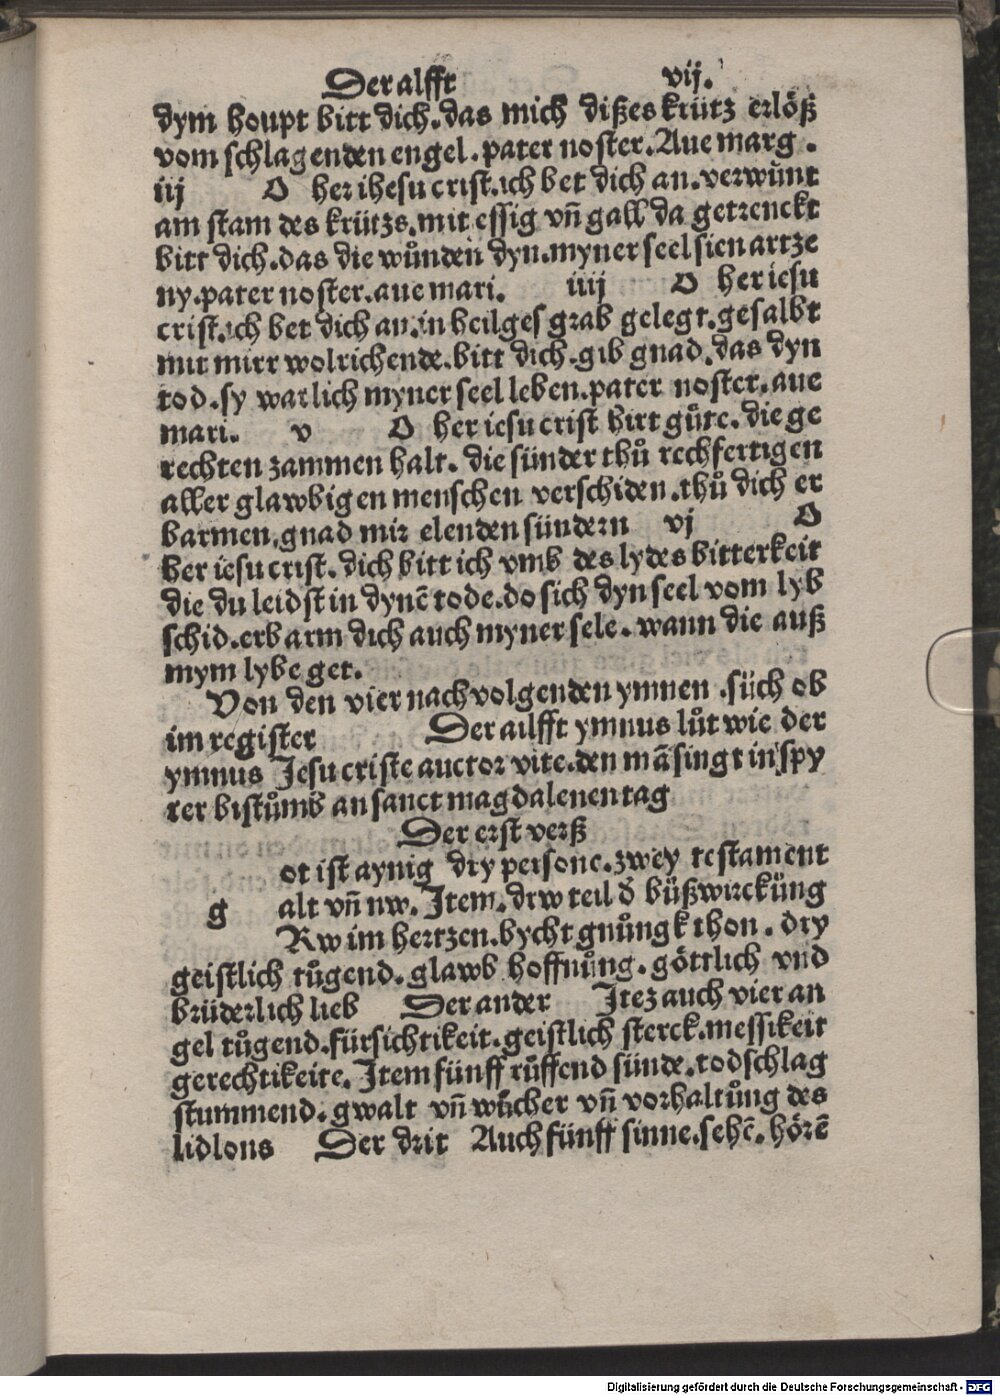 Der alfft vij.
dym houpt bitt dich. das mich dißes krütz erlöß
vom schlagenden engel. pater noster. Aue marg.
iij O her ihesu crist. ich bet dich an. verwůnt
am stam des krützs. mit essig vñ gall da getrenckt
bitt dich. das die wůnden dyn. myner seel sien artze
ny. pater noster. aue mari. iiij O her iesu
crist. ich bet dich an. in heilges grab gelegt. gesalbt
mit mirr wolrichende. bitt dich. gib gnad. das dyn
tod. sy warlich myner seel leben. pater noster. aue
mari. v O her iesu crist hirt gůte. die ge
rechten zammen halt. die sünder thů rechfertigen
aller glawbigen menschen verschiden. thů dich er
barmen. gnad mir elenden sündern vj O
her iesu crist. dich bitt ich vmb des lydes bitterkeit
die du leidst in dynē tode. do sich dyn seel vom lyb
schid. erbarm dich auch myner sele. wann die auß
mym lybe get.
Von den vier nachvolgenden ymnen. süch ob
im register Der ailfft ymnus lůt wie der
ymnus Jesu criste auctor vite. den mā singt in spy
rer bistůmb an sanct magdalenen tag
Der erst verß
g ot ist aynig dry persone. zwey testament
alt vñ nw. Item. drw teil d̄ büßwirckůng
Rw im hertzen. bycht gnůngk thon. dry
geistlich tůgend. glawb hoffnůng. göttlich vnd
brüderlich lieb Der ander Itez auch vier an
gel tůgend. fürsichtikeit. geistlich sterck. messikeit
gerechtikeite. Item fünff růffend sünde. todschlag
stummend. gwalt vñ wůcher vñ vorhaltůng des
lidlons Der drit Auch fünff sinne. sehē. hörē
Digitalisierung gefördert durch die Deutsche Forschungsgemeinschaft - DFG